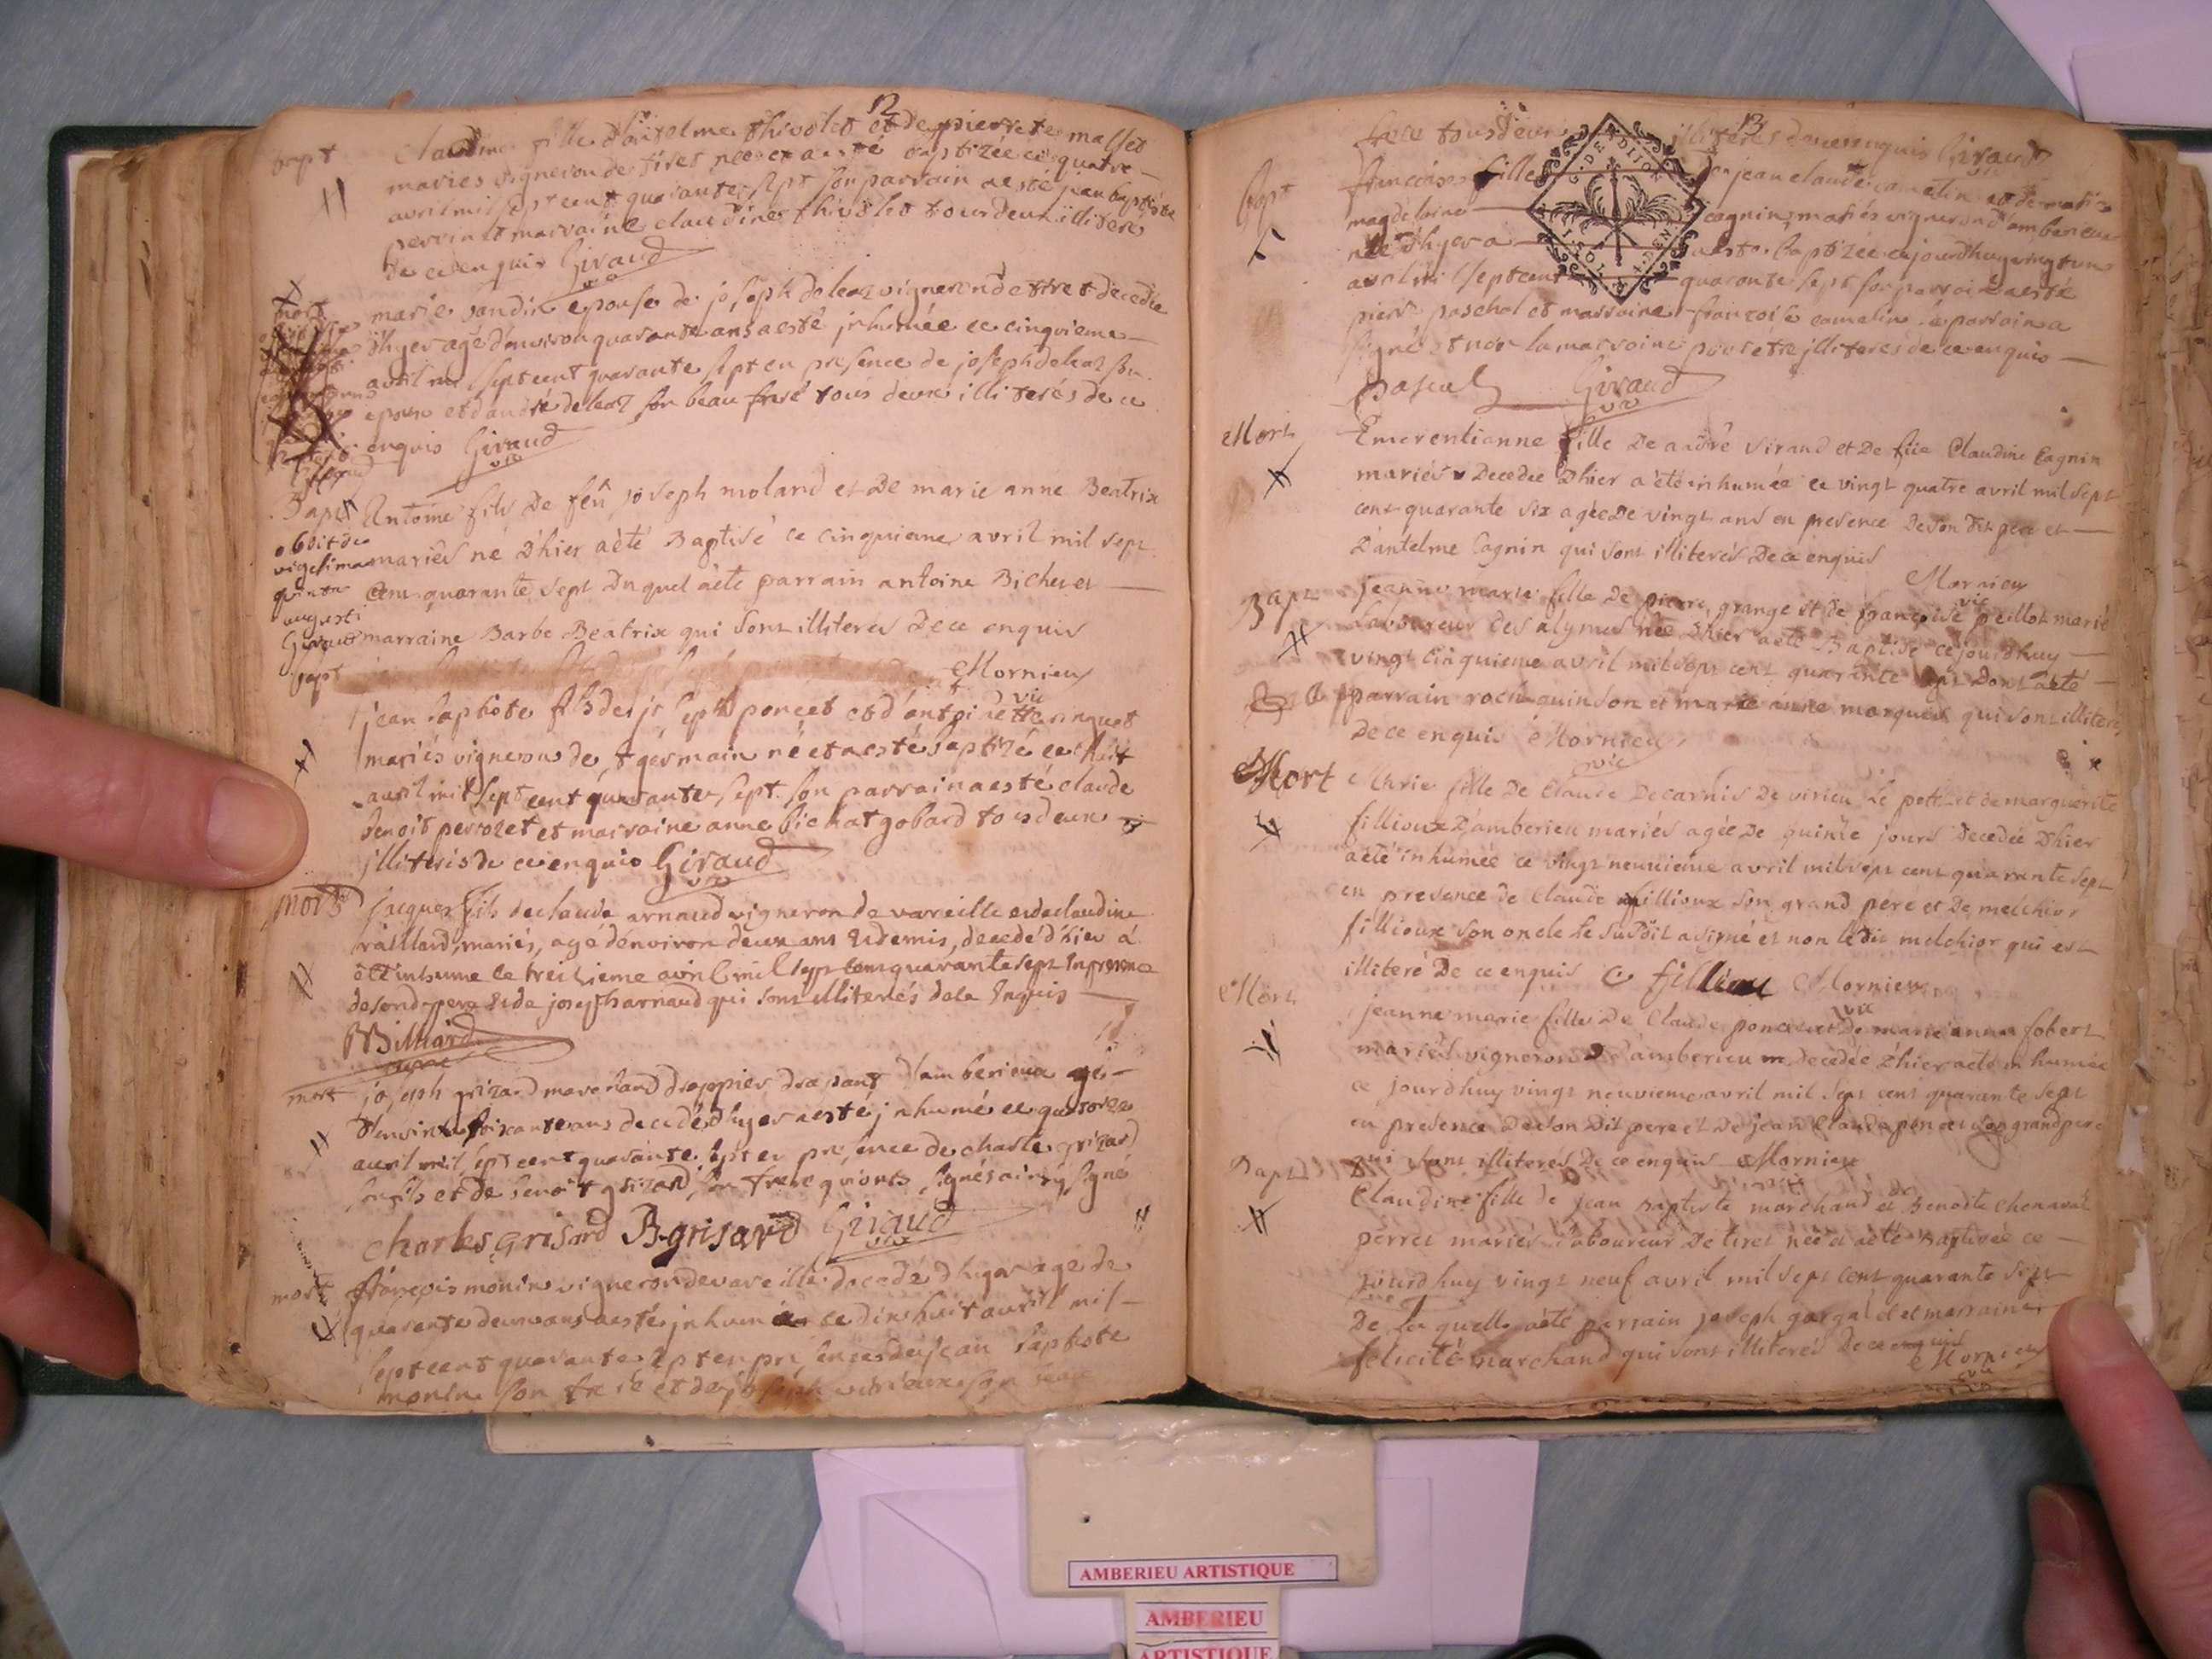 12
bapt
claudine fille d'antelme thivolet et de pierrete mallet
mariés vigneron de tiret née et a esté baptizée ce quatre
avril mil sept cent quarante sept son parrain a esté jean baptiste
perrin et marraine claudine thivolet tous deux illiteré
de ce enquis Giraud
vic
mort
marie epouse de joseph deleaz vigneron de tiret decedée
d'hyer agé d'environ quarante ans a esté inhumée ce cinquieme
avril mil sept cent quarante sept en presence de joseph deleaz son
epoux et d'andré deleaz son beau frere tous deux illiterés de ce
enquis Giraud
vic
Bapt
Antoine fils De feu joseph moland et De marie anne Beatrix
obiit die
vigesima
quinta
augusti
Giraud
mariés né D'hier a èté Baptisé ce cinquieme avril mil sept
cent quarante sept Duquel a èté parrain antoine Bichet et
marraine Barbe Beatrix qui sont illiterés De ce enquis
Mornieu
vic
bapt
jean baptiste fils de joseph poncet et d'
mariés vigneron de st germain né et a esté baptizé ce huit
avril mil sept cent quarante sept son parrain a esté claude
benoit perrozet et marraine anne bichat gobard tous deux
illiterés de ce enquis Giraud
vic
mort
jacques fils de claude arnaud vigneron de vareille et de claudine
raillard, mariés, agé d'environ deux ans et demis, decedé d'hier a
été inhumé le treizieme avril mil sept cent quarante sept en presence
de sond. pere et de joseph arnaud qui sont illiterés de ce enquis
Billiard
mort
joseph grizard marchand drappier drapant d'amberieux agé
d'environ soixante ans decedé d'hyer a esté inhumé ce quatorze
avril mil sept cent quarante sept en presence de charle grizard
son fils et de benoit grizard son frere qui ont signés ainsy signé
charles Grisard B. grisard Giraud
vic
mort
françois monin vigneron de vareille decedé d'hyer agé de
quarante deux ans a esté inhumé ce dix huit avril mil
sept cent quarante sept en presences de jean baptiste
monin son frere et de joseph son beau
13
frere tous deux illiterés de ce enquis Giraud
vic
bapt
françoise fille de jean claude camelin et de marie
magdelaine cagnin mariés vigneron d'amberieux
née d'hyer a esté baptizée aujourdhuy vingt un
avril mil sept cent quarante sept son parrain a esté
pierre paschal et marraine françoise camelin le parrain a
signé et non la marraine pour etre illiterés de ce enquis
Pascal Giraud
vic
Mort
Emerentianne fille De andré Virand et De füe Claudine Cagnin
mariés Decedée D'hier a èté inhumée ce vingt quatre avril mil sept
cent quarante six agée De vingt ans en presence De son dit pere et
D'antelme Cagnin qui sont illiterés De ce enquis
Mornieu
vic
Bapt
jeanne marie fille De pierre grange et de françoise preillot mariés
laboureur Des alymes née D'hier a èté Baptisé ce jourdhuy
vingt cinquieme avril mil sept cent quarante sept Dont a èté
parrain roch quinson et marie anne marquet qui sont illiterés
De ce enquis Mornieu
vic
Mort
Marie fille De Claude Decarnis De virieu Le petit et de marguerite
fillioux D'amberieu mariés agée De quinze jours Decedée D'hier
a èté inhumée ce vingt neuvieme avril mil sept cent quarante sept
en presence de Claude fillioux son grand pére et De melchior
fillioux son oncle le susdit a signé et non le dit melchior qui est
illiteré De ce enquis C fillioux Mornieu
vic
Mort
jeanne marie fille De Claude poncet et De marie anne fobert
mariés vigneron D'amberieu Decedée D'hier a èté inhumée
ce jourdhuy vingt neuvieme avril mil sept cent quarante sept
en presence De son Dit pere et De jean Claude poncet son grand pere
qui sont illiterés De ce enquis Mornieu
vic
Bapt
Claudine fille de jean Baptiste marchand et de Benoite chenaval
perret mariés laboureur De tiret née et a èté Baptisée ce
jourdhuy vingt neuf avril mil sept cent quarante sept
De la quelle a èté parrain joseph gargalet et marraine
felicité marchand qui sont illiterés De ce enquis
Mornieu
vic
G. DE DIJON
SOL
AMBERIEU ARTISTIQUE
AMBERIEU
ARTISTIQUE